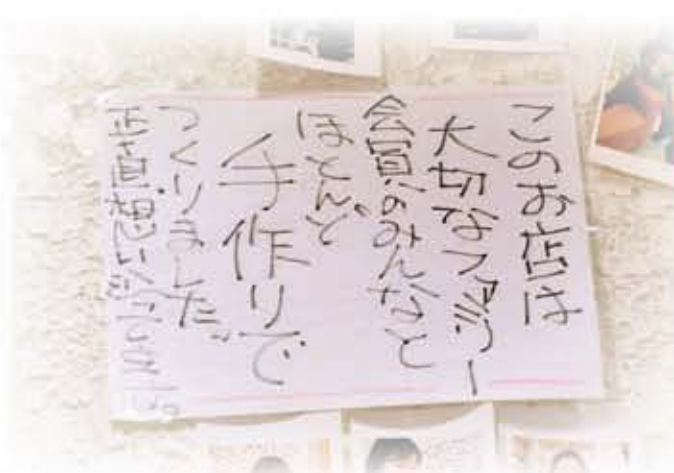 このお店は
大切なファミリー
会員のみんなと
ほとんど
手作りで
つくりました